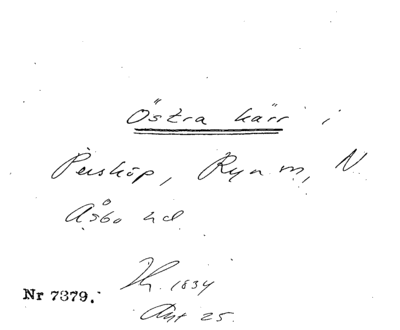 Östra kärr i
Persköp, Ryn m, N
Åsbo hd
Nr 7379. Th. 1834
Akt 25.